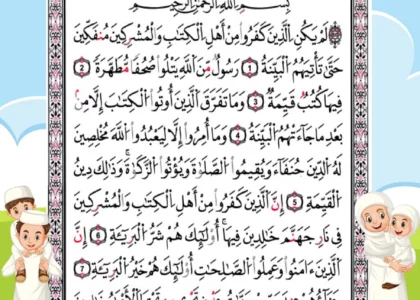 بِسْمِ اللَّهِ الرَّحْمَٰنِ الرَّحِيمِ
لَمْ يَكُنِ الَّذِينَ كَفَرُوا مِنْ أَهْلِ الْكِتَٰبِ وَالْمُشْرِكِينَ مُنفَكِّينَ
حَتَّىٰ تَأْتِيَهُمُ الْبَيِّنَةُ ١ رَسُولٌ مِّنَ اللَّهِ يَتْلُوا صُحُفًا مُّطَهَّرَةً ٢
فِيهَا كُتُبٌ قَيِّمَةٌ ٣ وَمَا تَفَرَّقَ الَّذِينَ أُوتُوا الْكِتَٰبَ إِلَّا مِنۢ
بَعْدِ مَا جَاءَتْهُمُ الْبَيِّنَةُ ٤ وَمَا أُمِرُوا إِلَّا لِيَعْبُدُوا اللَّهَ مُخْلِصِينَ
لَهُ الدِّينَ حُنَفَاءَ وَيُقِيمُوا الصَّلَوٰةَ وَيُؤْتُوا الزَّكَوٰةَ وَذَٰلِكَ دِينُ
الْقَيِّمَةِ ٥ إِنَّ الَّذِينَ كَفَرُوا مِنْ أَهْلِ الْكِتَٰبِ وَالْمُشْرِكِينَ
فِي نَارِ جَهَنَّمَ خَٰلِدِينَ فِيهَا أُولَٰئِكَ هُمْ شَرُّ الْبَرِيَّةِ ٦ إِنَّ
الَّذِينَ ءَامَنُوا وَعَمِلُوا الصَّٰلِحَٰتِ أُولَٰئِكَ هُمْ خَيْرُ الْبَرِيَّةِ ٧